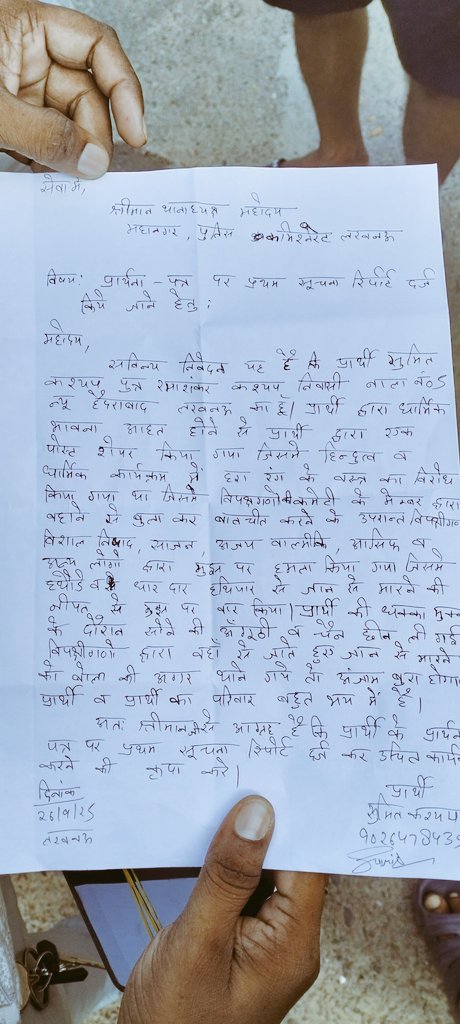 सेवा में,
श्रीमान थानाध्यक्ष महोदय
महानगर, पुलिस कमिश्नरेट लखनऊ
विषय: प्रार्थना-पत्र पर प्रथम सूचना रिपोर्ट दर्ज
किये जाने हेतु।
महोदय,
सविनय निवेदन यह है कि प्रार्थी सुमित
कश्यप पुत्र रमाशंकर कश्यप निवासी नाला नं० 5
न्यू हैदराबाद लखनऊ का है। प्रार्थी द्वारा धार्मिक
भावना आहत होने से प्रार्थी द्वारा एक
पोस्ट शेयर किया गया जिसमें हिन्दुत्व व
धार्मिक कार्यक्रम में हरा रंग के वस्त्र का विरोध
किया गया था जिसमें विपक्षीगणों कमेटी के मेम्बर द्वारा
बहाने से बुला कर बातचीत करने के उपरान्त विपक्षीगण
विशाल निषाद, साजन, अजय वाल्मीकि, आसिफ व
अन्य लोगों द्वारा मुझ पर हमला किया गया जिसमें
हथौड़े व धार दार हथियार से जान से मारने की
नीयत से मुझ पर वार किया। प्रार्थी की धक्का मुक्की
के दौरान सोने की अँगूठी व चैन छीन ली गई
विपक्षीगणों द्वारा वहाँ से जाते हुए जान से मारने
को बोला की अगर थाने गये तो अंजाम बुरा होगा
प्रार्थी व प्रार्थी का परिवार बहुत भय में है।
अतः श्रीमान जी से आग्रह है कि प्रार्थी के प्रार्थना
पत्र पर प्रथम सूचना रिपोर्ट दर्ज कर उचित कार्य
करने की कृपा करें।
दिनांक
26/9/25
लखनऊ
प्रार्थी
सुमित कश्यप
902647843